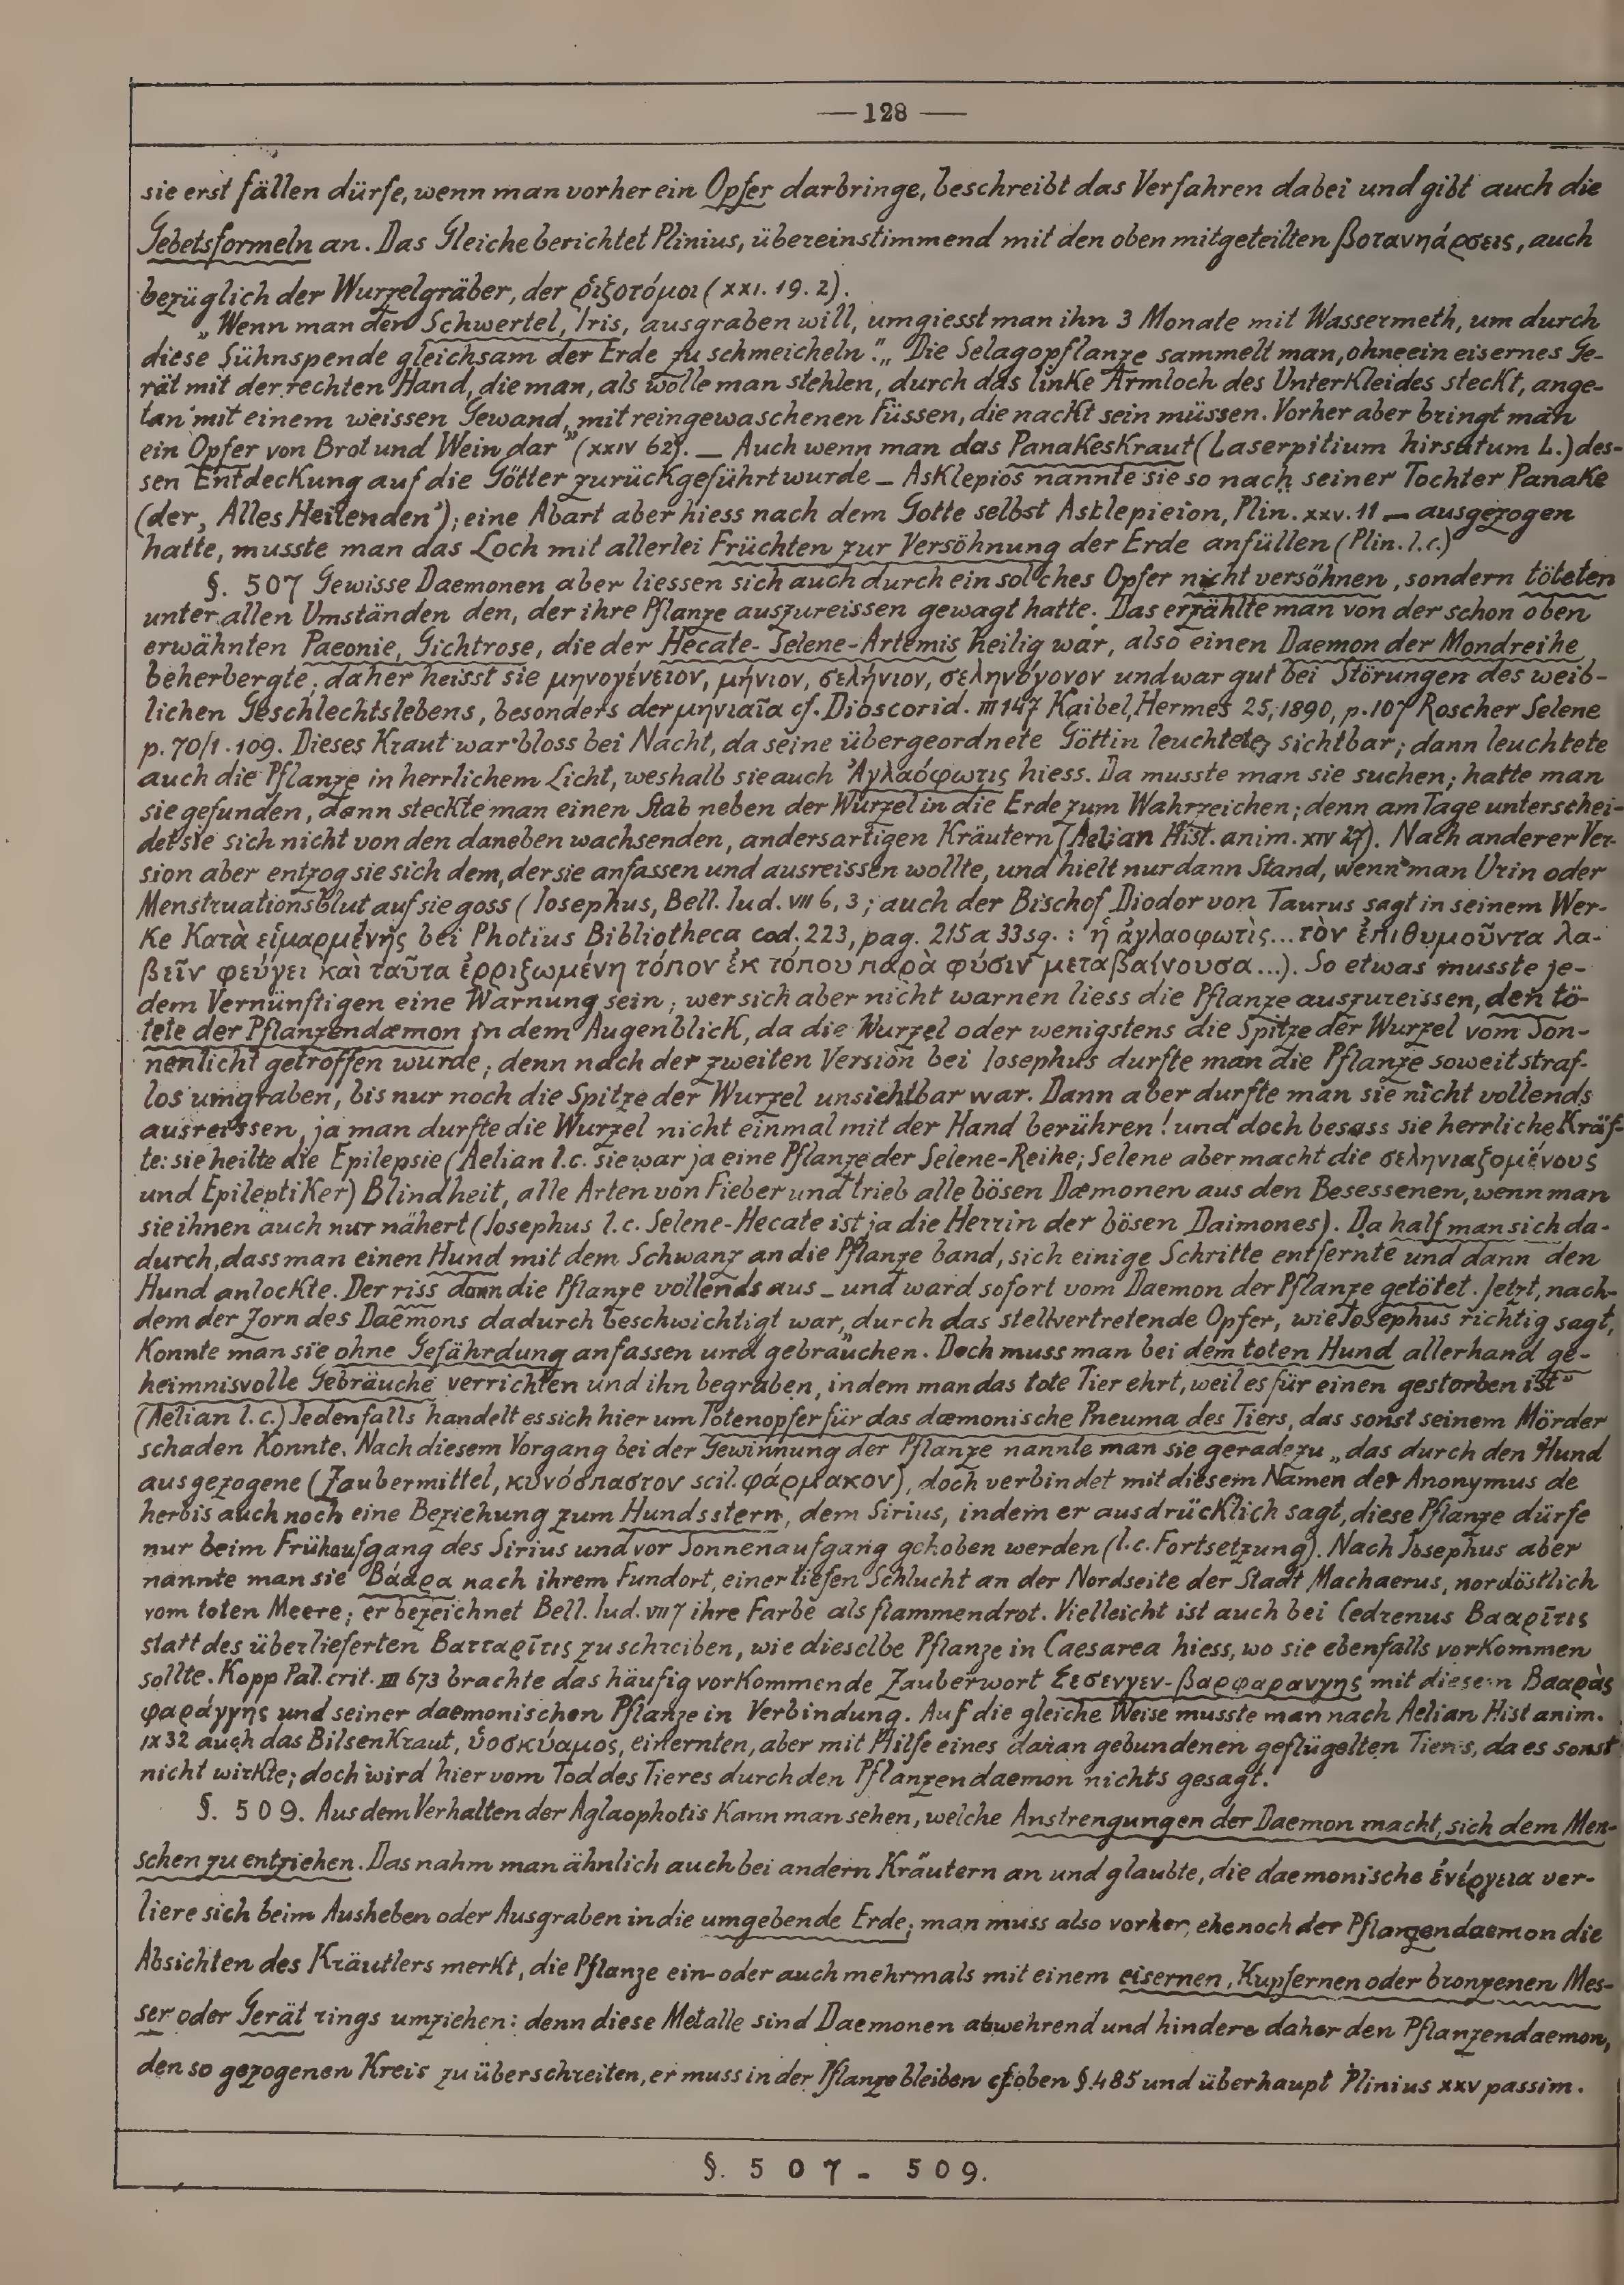 — 128 —
sie erst fällen dürfe, wenn man vorher ein Opfer darbringe, beschreibt das Verfahren dabei und gibt auch die
Gebetsformeln an. Das Gleiche berichtet Plinius, übereinstimmend mit den oben mitgeteilten βοτανηάρσεις, auch
bezüglich der Wurzelgräber, der ῥιζοτόμοι (XXI. 19. 2).
„Wenn man den Schwertel, Iris, ausgraben will, umgiesst man ihn 3 Monate mit Wassermeth, um durch
diese Sühnspende gleichsam der Erde zu schmeicheln". „Die Selagopflanze sammelt man, ohne ein eisernes Ge-
rät mit der rechten Hand, die man, als wolle man stehlen, durch das linke Armloch des Unterkleides steckt, ange-
tan mit einem weissen Gewand, mit reingewaschenen Füssen, die nackt sein müssen. Vorher aber bringt man
ein Opfer von Brot und Wein dar" (XXIV 62). — Auch wenn man das Panakeskraut (Laserpitium hirsutum L.) des-
sen Entdeckung auf die Götter zurückgeführt wurde — Asklepios nannte sie so nach seiner Tochter Panake
(der, Alles Heilenden'); eine Abart aber hiess nach dem Gotte selbst Asklepieion, Plin. XXV. 11 — ausgezogen
hatte, musste man das Loch mit allerlei Früchten zur Versöhnung der Erde anfüllen (Plin. l.c.)
§. 507 Gewisse Daemonen aber liessen sich auch durch ein solches Opfer nicht versöhnen, sondern töteten
unter allen Umständen den, der ihre Pflanze auszureissen gewagt hatte. Das erzählte man von der schon oben
erwähnten Paeonie, Gichtrose, die der Hecate-Selene-Artemis heilig war, also einen Daemon der Mondreihe
beherbergte; daher heisst sie μηνογένειον, μήνιον, σελήνιον, σεληνόγονον und war gut bei Störungen des weib-
lichen Geschlechtslebens, besonders der μηνιαῖα cf. Dioscorid. III 147 Kaibel, Hermes 25, 1890, p. 107 Roscher Selene
p. 70/1. 109. Dieses Kraut war bloss bei Nacht, da seine übergeordnete Göttin leuchtete, sichtbar; dann leuchtete
auch die Pflanze in herrlichem Licht, weshalb sie auch Ἀγλαόφωτις hiess. Da musste man sie suchen; hatte man
sie gefunden, dann steckte man einen Stab neben der Wurzel in die Erde zum Wahrzeichen; denn am Tage unterschei-
det sie sich nicht von den daneben wachsenden, andersartigen Kräutern (Aelian Hist. anim. XIV 27). Nach anderer Ver-
sion aber entzog sie sich dem, der sie anfassen und ausreissen wollte, und hielt nur dann Stand, wenn man Urin oder
Menstruationsblut auf sie goss (Iosephus, Bell. Iud. VII 6, 3; auch der Bischof Diodor von Taurus sagt in seinem Wer-
ke Κατὰ εἱμαρμένης bei Photius Bibliotheca cod. 223, pag. 215a 33sq.: ἡ ἀγλαοφωτὶς...τὸν ἐπιθυμοῦντα λα-
βεῖν φεύγει καὶ ταῦτα ἐρριζωμένη τόπον ἐκ τόπου παρὰ φύσιν μεταβαίνουσα...). So etwas musste je-
dem Vernünftigen eine Warnung sein; wer sich aber nicht warnen liess die Pflanze auszureissen, den tö-
tete der Pflanzendæmon in dem Augenblick, da die Wurzel oder wenigstens die Spitze der Wurzel vom Son-
nenlicht getroffen wurde; denn nach der zweiten Version bei Iosephus durfte man die Pflanze soweit straf-
los umgraben, bis nur noch die Spitze der Wurzel unsichtbar war. Dann aber durfte man sie nicht vollends
ausreissen, ja man durfte die Wurzel nicht einmal mit der Hand berühren! und doch besass sie herrliche Kräf-
te: sie heilte die Epilepsie (Aelian l.c. sie war ja eine Pflanze der Selene-Reihe; Selene aber macht die σεληνιαζομένους
und Epileptiker) Blindheit, alle Arten von Fieber und trieb alle bösen Dæmonen aus den Besessenen, wenn man
sie ihnen auch nur nähert (Iosephus l.c. Selene-Hecate ist ja die Herrin der bösen Daimones). Da half man sich da-
durch, dass man einen Hund mit dem Schwanz an die Pflanze band, sich einige Schritte entfernte und dann den
Hund anlockte. Der riss dann die Pflanze vollends aus — und ward sofort vom Daemon der Pflanze getötet. Jetzt, nach-
dem der Zorn des Daemons dadurch beschwichtigt war, „durch das stellvertretende Opfer, wie Josephus richtig sagt,
konnte man sie ohne Gefährdung anfassen und gebrauchen. Doch muss man bei dem toten Hund allerhand ge-
heimnisvolle Gebräuche verrichten und ihn begraben, indem man das tote Tier ehrt, weil es für einen gestorben ist"
(Aelian l.c.) Jedenfalls handelt es sich hier um Totenopfer für das dæmonische Pneuma des Tiers, das sonst seinem Mörder
schaden konnte. Nach diesem Vorgang bei der Gewinnung der Pflanze nannte man sie geradezu „das durch den Hund
ausgezogene (Zaubermittel, κυνόσπαστον scil. φάρμακον), doch verbindet mit diesem Namen der Anonymus de
herbis auch noch eine Beziehung zum Hundsstern, dem Sirius, indem er ausdrücklich sagt, diese Pflanze dürfe
nur beim Frühaufgang des Sirius und vor Sonnenaufgang gehoben werden (l.c. Fortsetzung). Nach Josephus aber
nannte man sie Βάαρα nach ihrem Fundort, einer tiefen Schlucht an der Nordseite der Stadt Machaerus, nordöstlich
vom toten Meere; er bezeichnet Bell. Iud. VII 7 ihre Farbe als flammendrot. Vielleicht ist auch bei Cedrenus Βααρῖτις
statt des überlieferten Βατταρῖτις zu schreiben, wie dieselbe Pflanze in Caesarea hiess, wo sie ebenfalls vorkommen
sollte. Kopp Pal. crit. III 673 brachte das häufig vorkommende Zauberwort Σεσενγεν-βαρφαρανγης mit diesem Βααρὰς
φαράγγης und seiner daemonischen Pflanze in Verbindung. Auf die gleiche Weise musste man nach Aelian Hist anim.
IX 32 auch das Bilsenkraut, ὑοσκύαμος, einernten, aber mit Hilfe eines daran gebundenen geflügelten Tieres, da es sonst
nicht wirkte; doch wird hier vom Tod des Tieres durch den Pflanzendaemon nichts gesagt.
§. 509. Aus dem Verhalten der Aglaophotis kann man sehen, welche Anstrengungen der Daemon macht, sich dem Men-
schen zu entziehen. Das nahm man ähnlich auch bei andern Kräutern an und glaubte, die daemonische ἐνέργεια ver-
liere sich beim Ausheben oder Ausgraben in die umgebende Erde; man muss also vorher, ehe noch der Pflanzendaemon die
Absichten des Kräutlers merkt, die Pflanze ein- oder auch mehrmals mit einem eisernen, kupfernen oder bronzenen Mes-
ser oder Gerät rings umziehen: denn diese Metalle sind Daemonen abwehrend und hindere daher den Pflanzendaemon,
den so gezogenen Kreis zu überschreiten, er muss in der Pflanze bleiben cf. oben §.485 und überhaupt Plinius XXV passim.
§. 507 - 509.